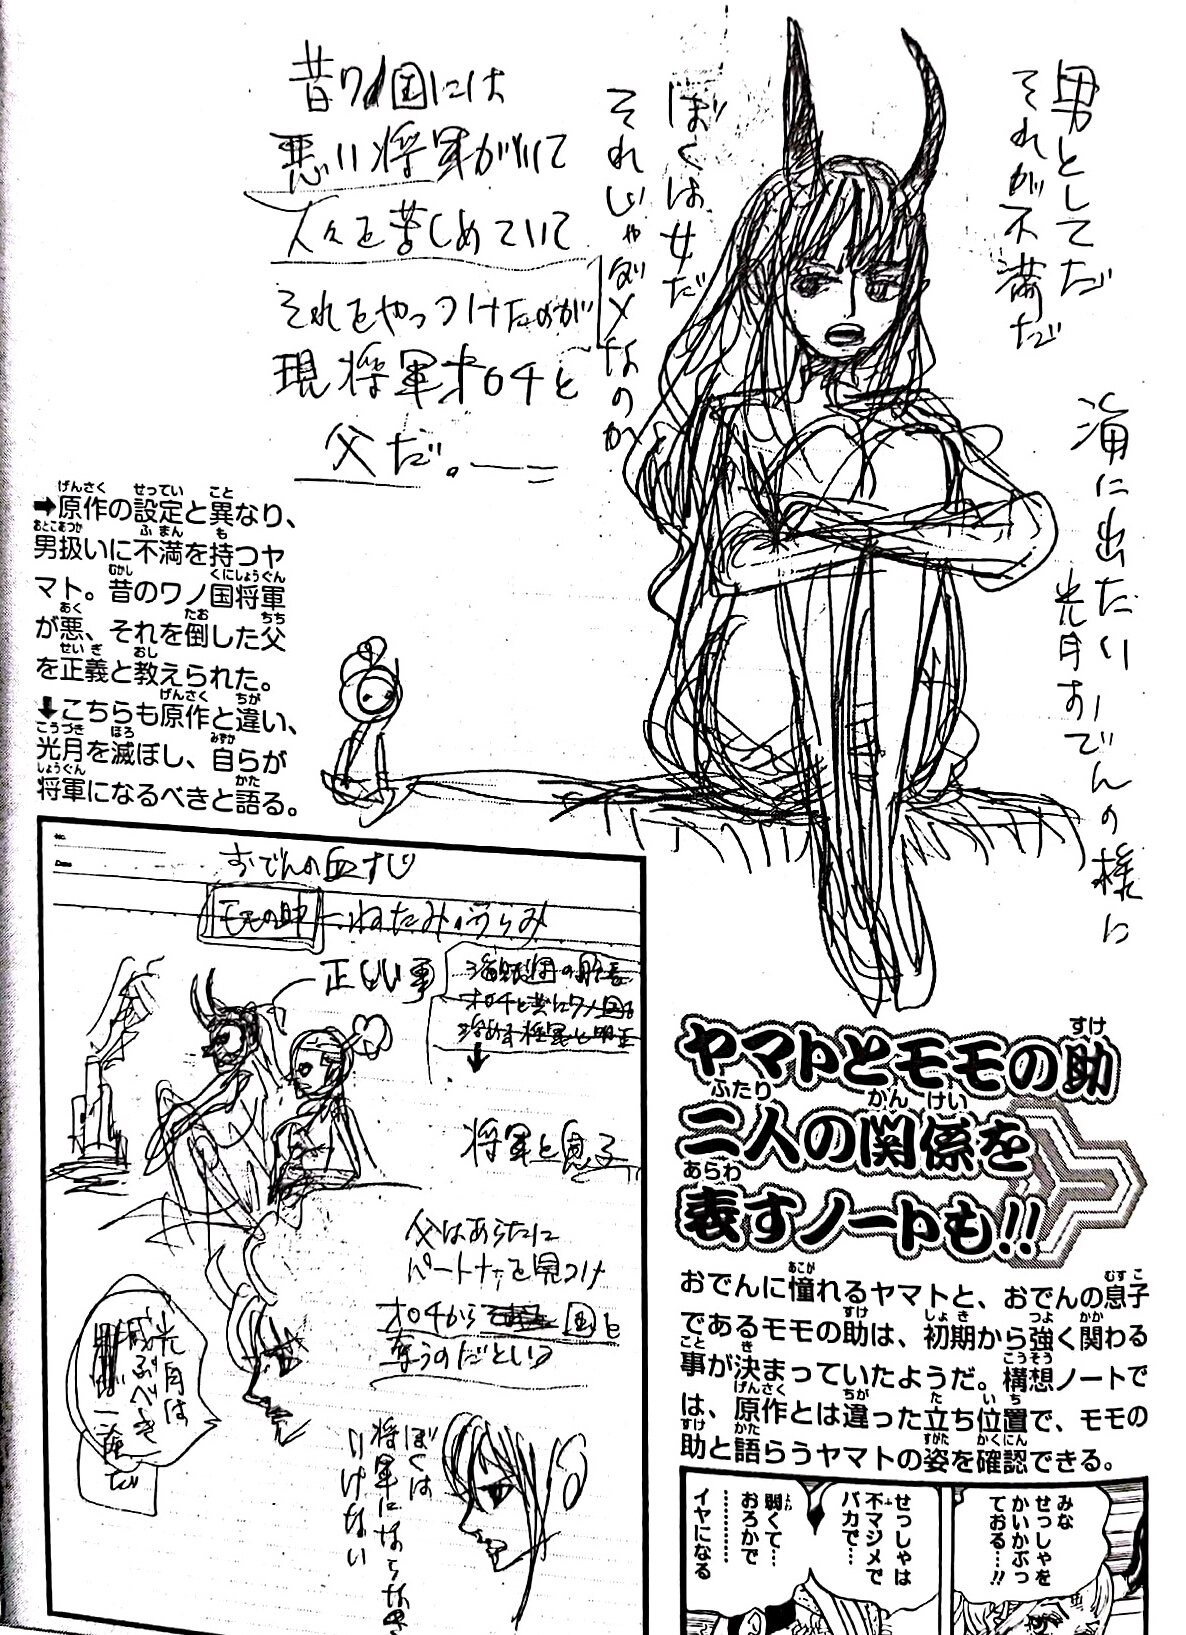 昔ワノ国には
悪い将軍がいて
人々を苦しめていて
それをやっつけたのが
現将軍オロチと
父だ。
男としてだ
それが不満だ
ぼくは女だ
それじゃダメなのか
海に出たいーでんの様に
光月おでん
➡原作の設定と異なり、
男扱いに不満を持つヤ
マト。昔のワノ国将軍
が悪、それを倒した父
を正義と教えられた。
⬇こちらも原作と違い、
光月を滅ぼし、自らが
将軍になるべきと語る。
おでんの血すじ
モモの助 ねたみ・うらみ
正しい事
将軍と息子
父はあらたに
パートナーを見つけ
オロチから 国を
奪うのだという
光月は
滅ぶべき
一族だ
ぼくは
将軍にならなき
いけない
ヤマトとモモの助
二人の関係を
表すノートも!!
おでんに憧れるヤマトと、おでんの息子
であるモモの助は、初期から強く関わる
事が決まっていたようだ。構想ノートで
は、原作とは違った立ち位置で、モモの
助と語らうヤマトの姿を確認できる。
みな
せっしゃを
かいかぶっ
ておる…!!
せっしゃは
不マジメで
バカで…
弱くて…
おろかで
…………
イヤになる